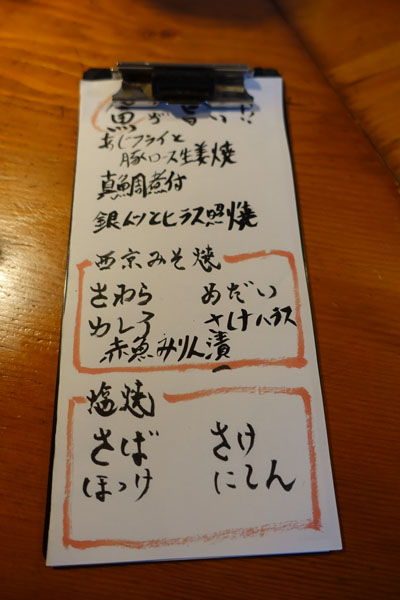 魚が旨い!!
あじフライと
豚ロース生姜焼
真鯛煮付
銀ムツとヒラス照焼
西京みそ焼
さわら めだい
カレイ さけハラス
赤魚みりん漬
塩焼
さば さけ
ほっけ にしん